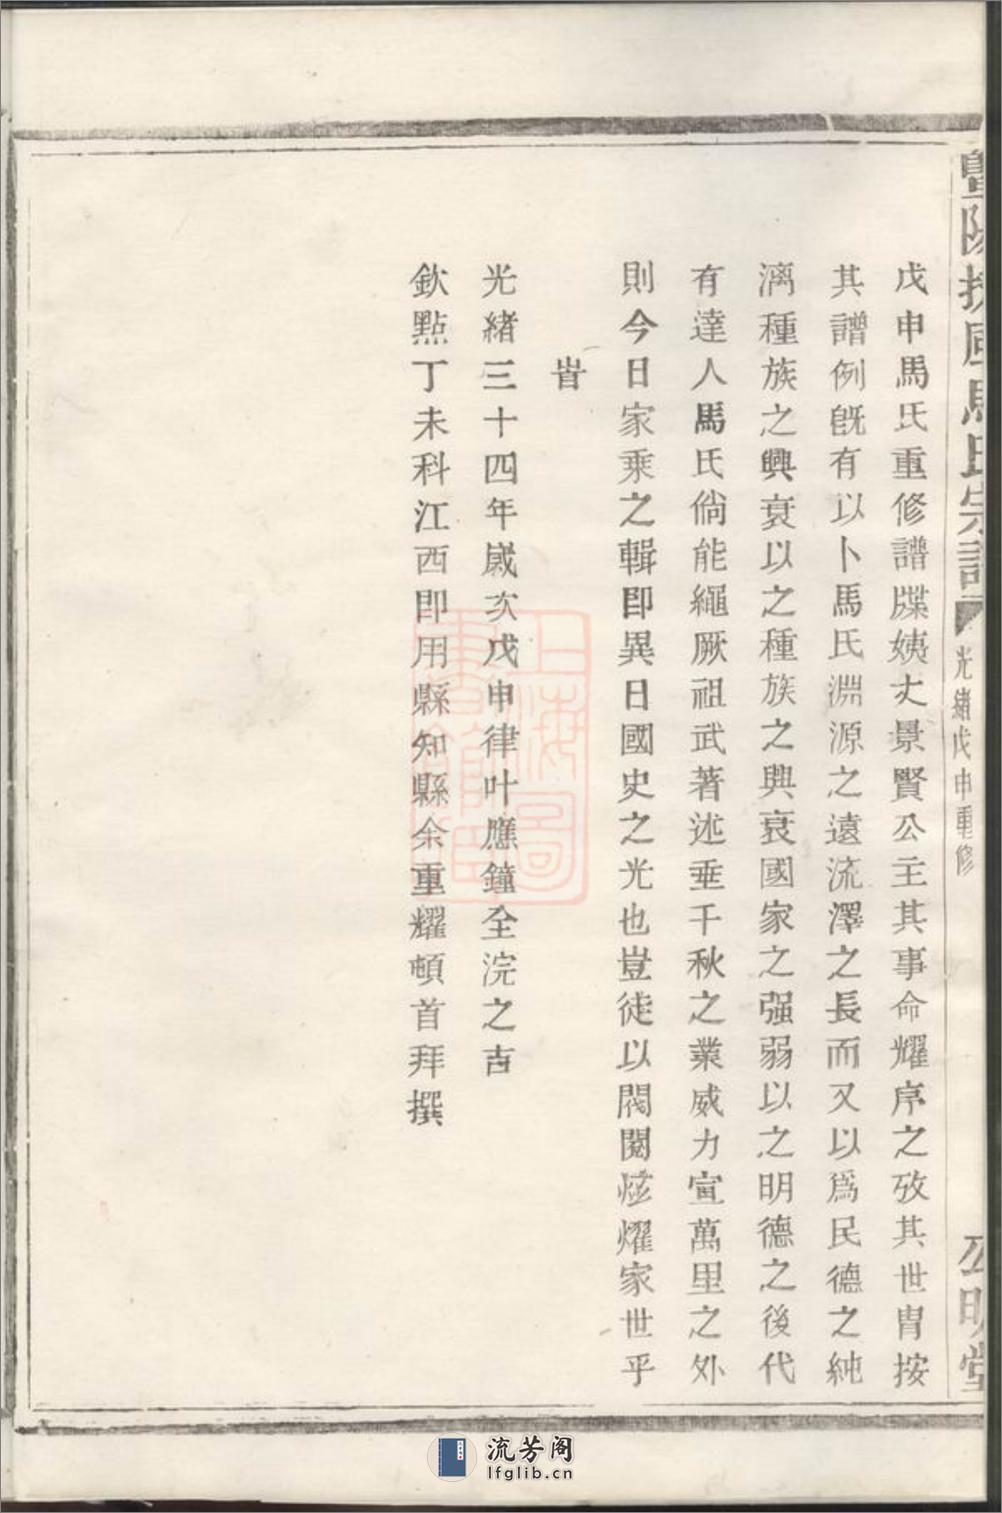 暨陽扶風馬氏宗譜
光緒戊申重修
公明堂
戊申馬氏重修譜牒姨丈景賢公主其事命耀序之攷其世冑按
其譜例旣有以卜馬氏淵源之遠流澤之長而又以爲民德之純
漓種族之興衰以之種族之興衰國家之强弱以之明德之後代
有達人馬氏倘能繩厥祖武著述垂千秋之業威力宣萬里之外
則今日家乘之輯卽異日國史之光也豈徒以閥閱炫耀家世乎
旹
光緒三十四年歲次戊申律叶應鐘全浣之吉
欽點丁未科江西卽用縣知縣余重耀頓首拜撰
上海圖書館藏
流芳阁
lfglib.cn